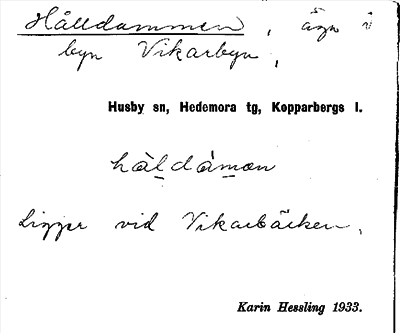 Hålldammen, äga i
byn Vikarbyn,
Husby sn, Hedemora tg, Kopparbergs l.
hàldámən
Ligger vid Vikarbäcken.
Karin Hessling 1933.